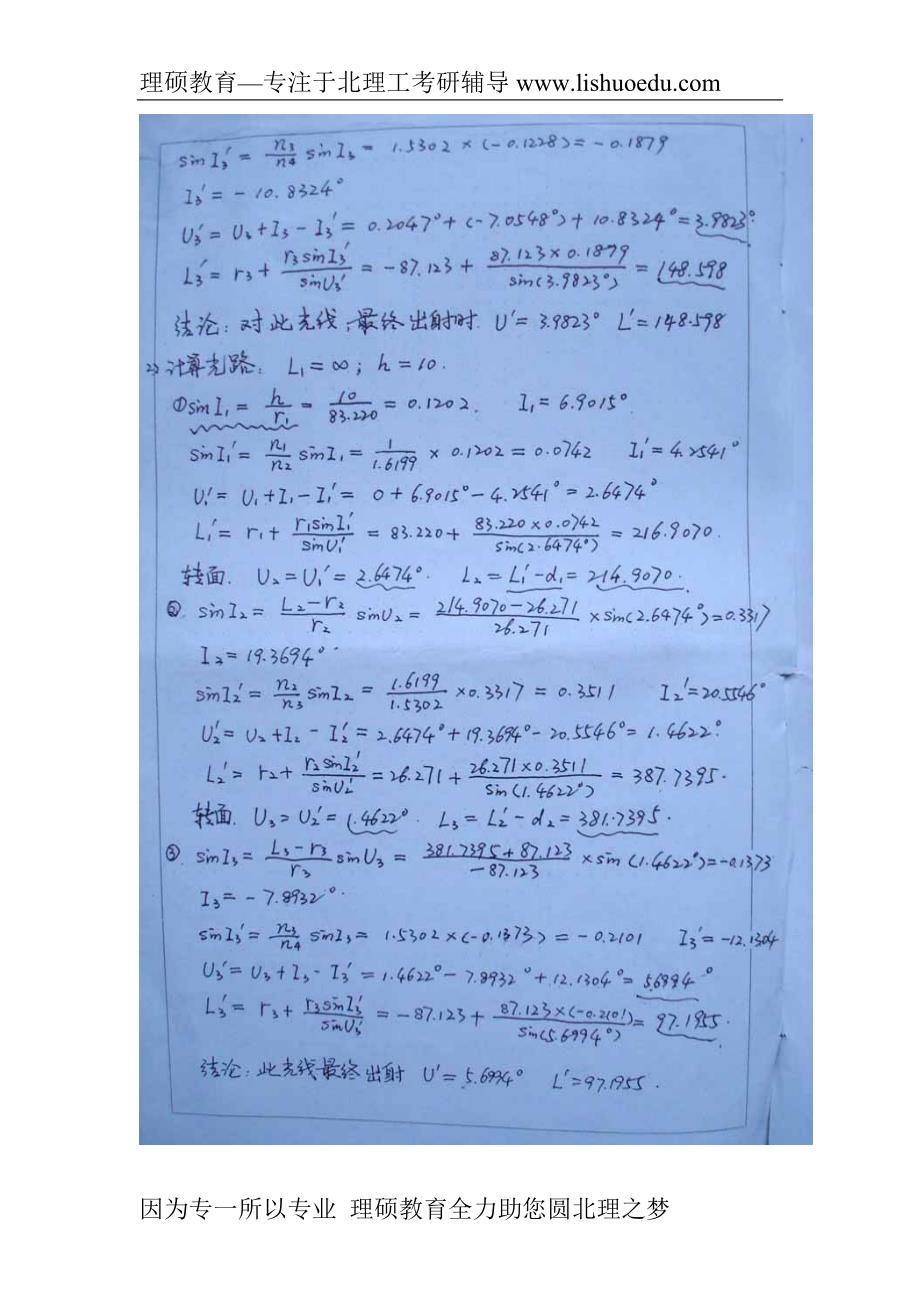 理硕教育—专注于北理工考研辅导 www.lishuoedu.com
sinI₃′ = n₃/n₄ sinI₃ = 1.5302 × (-0.1228) = -0.1879
I₃′ = -10.8324°
U₃′ = U₃ + I₃ - I₃′ = 0.2047° + (-7.0548°) + 10.8324° = 3.9823°
L₃′ = r₃ + r₃sinI₃′/sinU₃′ = -87.123 + 87.123×0.1879/sin(3.9823°) = 148.598
结论: 对此光线, 最终出射时. U′ = 3.9823° L′ = 148.598
2) 计算光路: L₁ = ∞; h = 10.
① sinI₁ = h/r₁ = 10/83.220 = 0.1202. I₁ = 6.9015°
sinI₁′ = n₁/n₂ sinI₁ = 1/1.6199 × 0.1202 = 0.0742 I₁′ = 4.2541°
U₁′ = U₁ + I₁ - I₁′ = 0 + 6.9015° - 4.2541° = 2.6474°
L₁′ = r₁ + r₁sinI₁′/sinU₁′ = 83.220 + 83.220×0.0742/sin(2.6474°) = 216.9070.
转面. U₂ = U₁′ = 2.6474°. L₂ = L₁′ - d₁ = 214.9070.
② sinI₂ = L₂-r₂/r₂ sinU₂ = 214.9070-26.271/26.271 × sin(2.6474°) = 0.3317
I₂ = 19.3694°
sinI₂′ = n₂/n₃ sinI₂ = 1.6199/1.5302 × 0.3317 = 0.3511 I₂′ = 20.5546°
U₂′ = U₂ + I₂ - I₂′ = 2.6474° + 19.3694° - 20.5546° = 1.4622°
L₂′ = r₂ + r₂sinI₂′/sinU₂′ = 26.271 + 26.271×0.3511/sin(1.4622°) = 387.7395.
转面. U₃ = U₂′ = 1.4622° L₃ = L₂′ - d₂ = 381.7395.
③ sinI₃ = L₃-r₃/r₃ sinU₃ = 381.7395+87.123/-87.123 × sin(1.4622°) = -0.1373
I₃ = -7.8932°
sinI₃′ = n₃/n₄ sinI₃ = 1.5302 × (-0.1373) = -0.2101 I₃′ = -12.1304
U₃′ = U₃ + I₃ - I₃′ = 1.4622° - 7.8932° + 12.1304° = 5.6994°
L₃′ = r₃ + r₃sinI₃′/sinU₃′ = -87.123 + 87.123×(-0.2101)/sin(5.6994°) = 97.1955.
结论: 此光线最终出射 U′ = 5.6994° L′ = 97.1955.
因为专一所以专业 理硕教育全力助您圆北理之梦